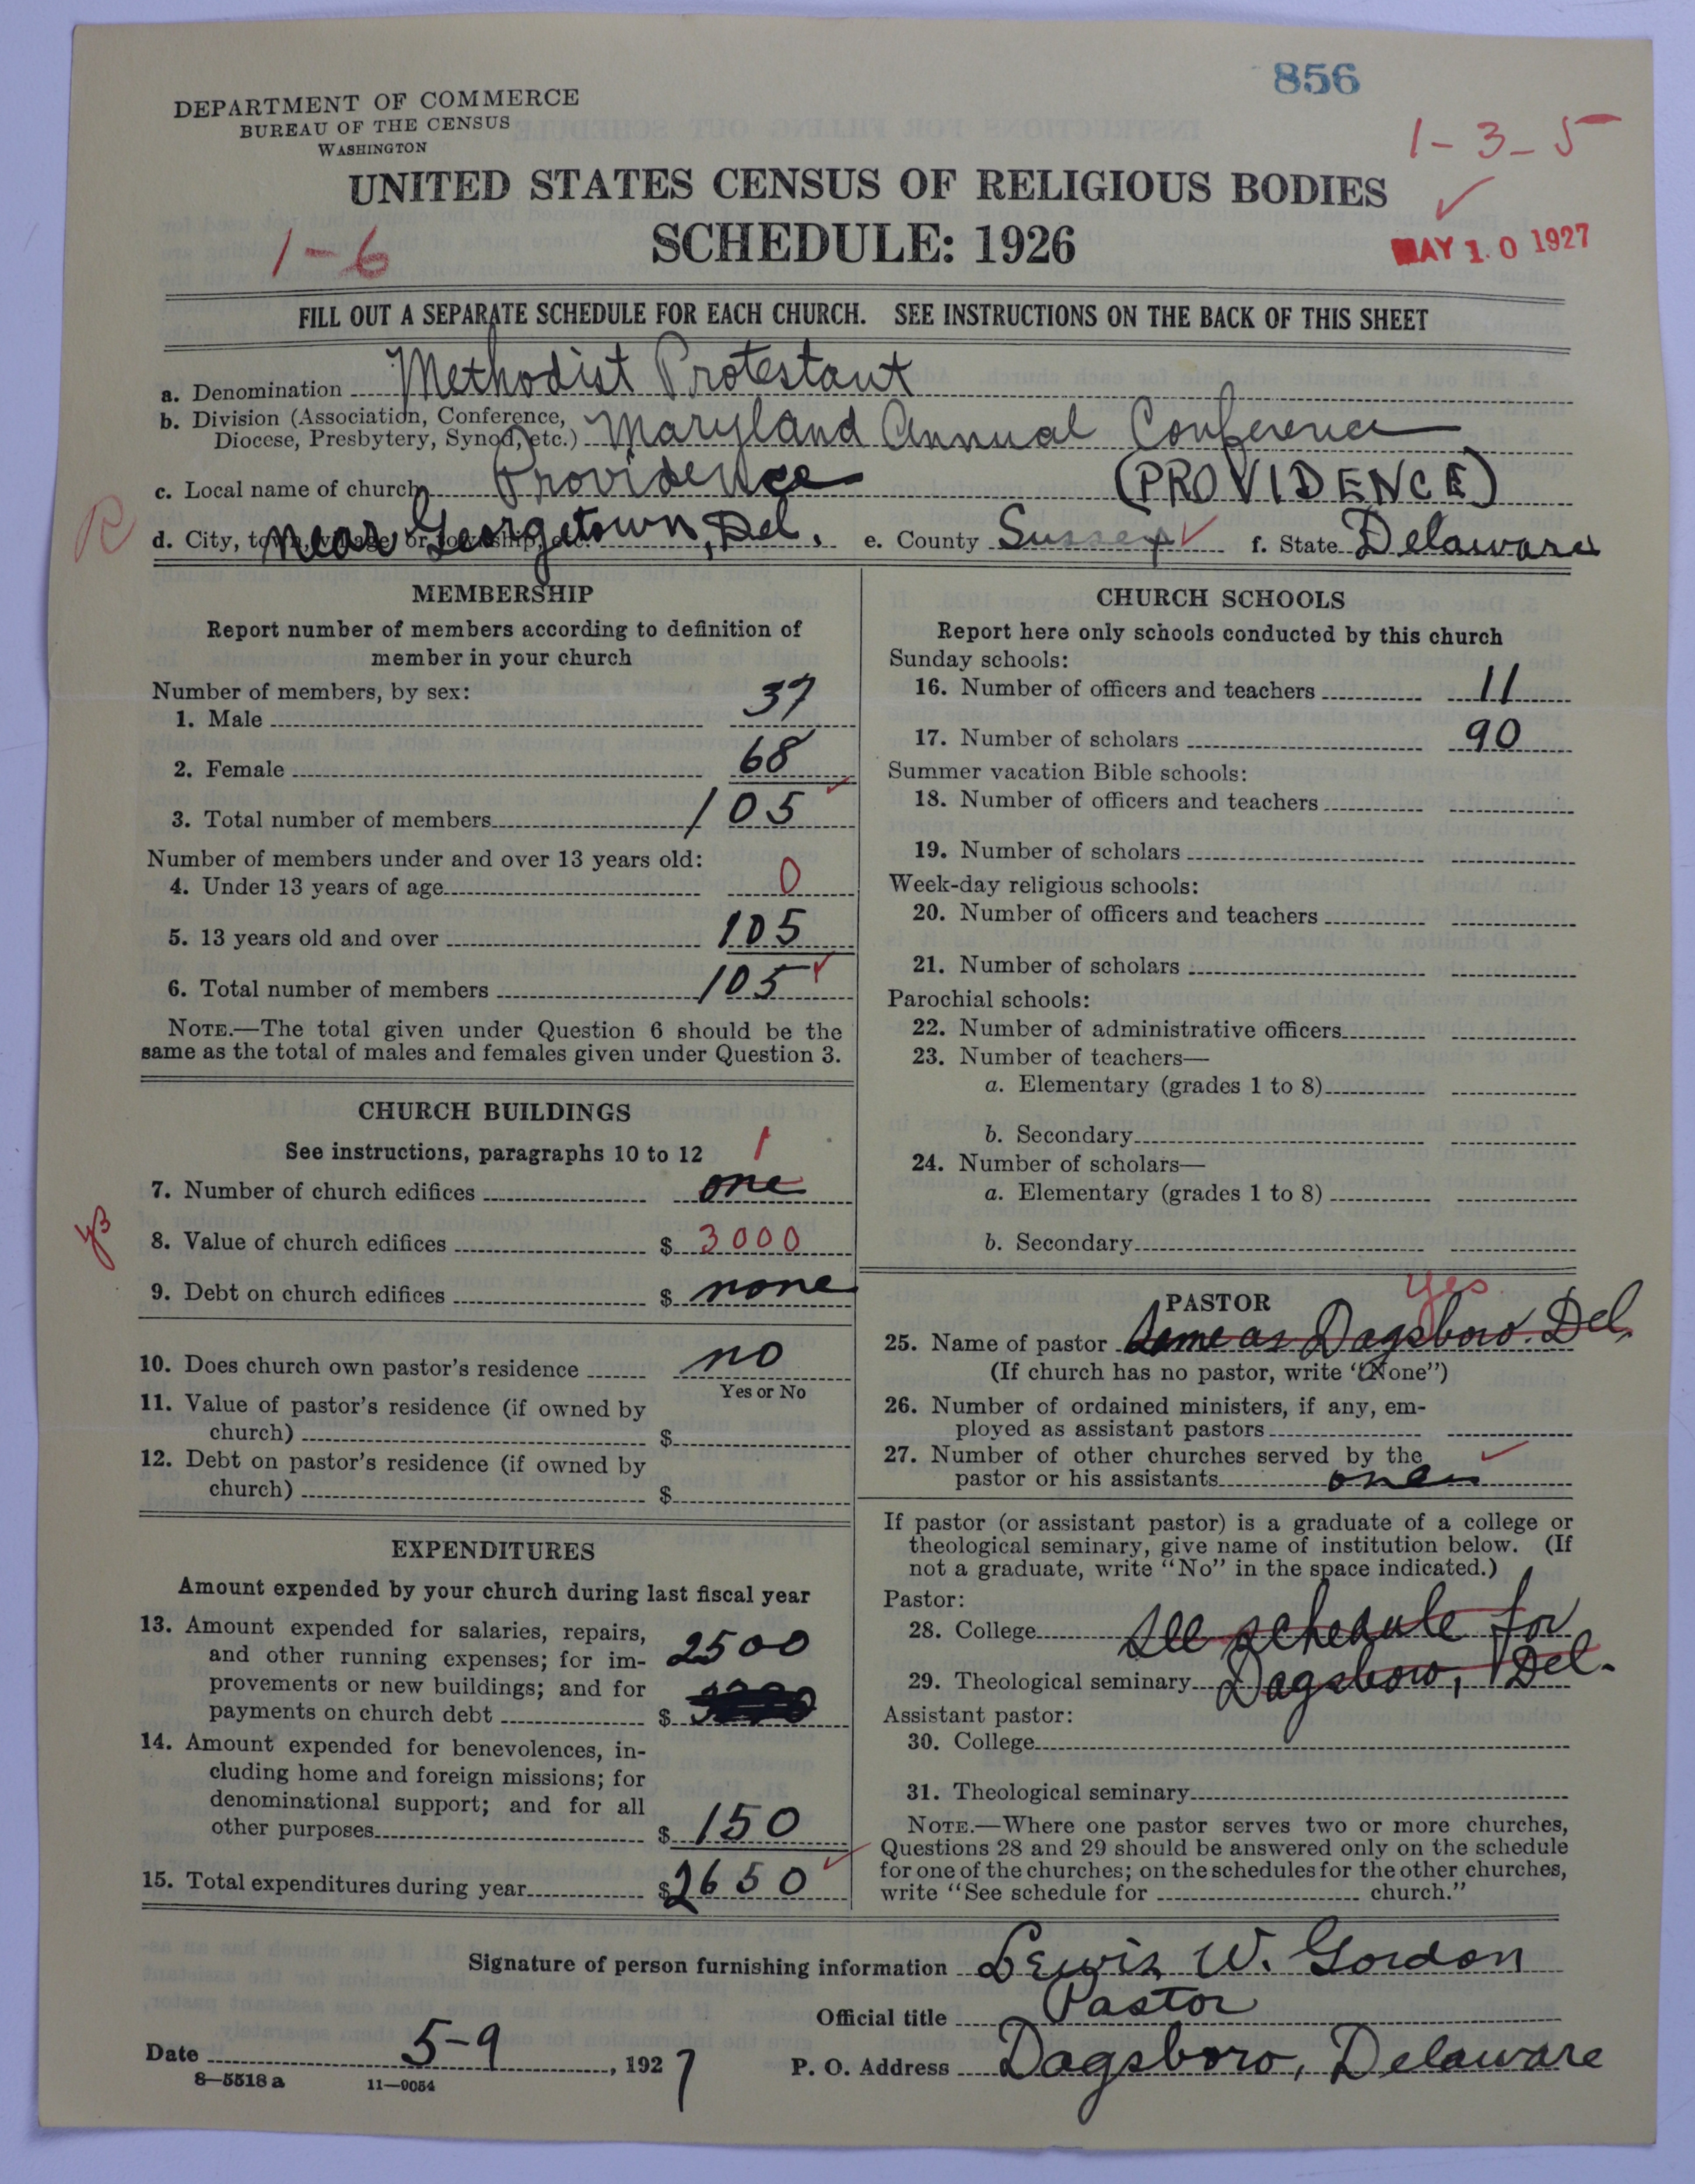 856
DEPARTMENT OF COMMERCE
BUREAU OF THE CENSUS
WASHINGTON
1-3-5
UNITED STATES CENSUS OF RELIGIOUS BODIES
SCHEDULE: 1926
1-6
MAY 10 1927
FILL OUT A SEPARATE SCHEDULE FOR EACH CHURCH. SEE INSTRUCTIONS ON THE BACK OF THIS SHEET
a. Denomination Methodist Protestant
b. Division (Association, Conference, Diocese, Presbytery, Synod, etc.) Maryland Annual Conference
c. Local name of church Providence (PROVIDENCE)
R
d. City, town, village, or township, etc. near Georgetown, Del. e. County Sussex f. State Delaware
MEMBERSHIP
Report number of members according to definition of
member in your church
Number of members, by sex:
1. Male 37
2. Female 68
3. Total number of members 105
Number of members under and over 13 years old:
4. Under 13 years of age 0
5. 13 years old and over 105
6. Total number of members 105
NOTE.—The total given under Question 6 should be the
same as the total of males and females given under Question 3.
CHURCH BUILDINGS
See instructions, paragraphs 10 to 12
1
7. Number of church edifices one
8. Value of church edifices $ 3000
9. Debt on church edifices $ none
10. Does church own pastor's residence no
Yes or No
11. Value of pastor's residence (if owned by
church) $
12. Debt on pastor's residence (if owned by
church) $
EXPENDITURES
Amount expended by your church during last fiscal year
13. Amount expended for salaries, repairs,
and other running expenses; for im- 2500
provements or new buildings; and for
payments on church debt $
14. Amount expended for benevolences, in-
cluding home and foreign missions; for
denominational support; and for all
other purposes $ 150
15. Total expenditures during year $ 2650
CHURCH SCHOOLS
Report here only schools conducted by this church
Sunday schools:
16. Number of officers and teachers 11
17. Number of scholars 90
Summer vacation Bible schools:
18. Number of officers and teachers
19. Number of scholars
Week-day religious schools:
20. Number of officers and teachers
21. Number of scholars
Parochial schools:
22. Number of administrative officers
23. Number of teachers—
a. Elementary (grades 1 to 8)
b. Secondary
24. Number of scholars—
a. Elementary (grades 1 to 8)
b. Secondary
yes
PASTOR
25. Name of pastor Same as Dagsboro. Del.
(If church has no pastor, write "None")
26. Number of ordained ministers, if any, em-
ployed as assistant pastors
27. Number of other churches served by the
pastor or his assistants one
If pastor (or assistant pastor) is a graduate of a college or
theological seminary, give name of institution below. (If
not a graduate, write "No" in the space indicated.)
Pastor:
28. College See schedule for
29. Theological seminary Dagsboro, Del.
Assistant pastor:
30. College
31. Theological seminary
NOTE.—Where one pastor serves two or more churches,
Questions 28 and 29 should be answered only on the schedule
for one of the churches; on the schedules for the other churches,
write "See schedule for church."
Signature of person furnishing information Lewis W. Gordon
Official title Pastor
Date 5-9, 1927 P. O. Address Dagsboro, Delaware
8—5518 a 11—9054